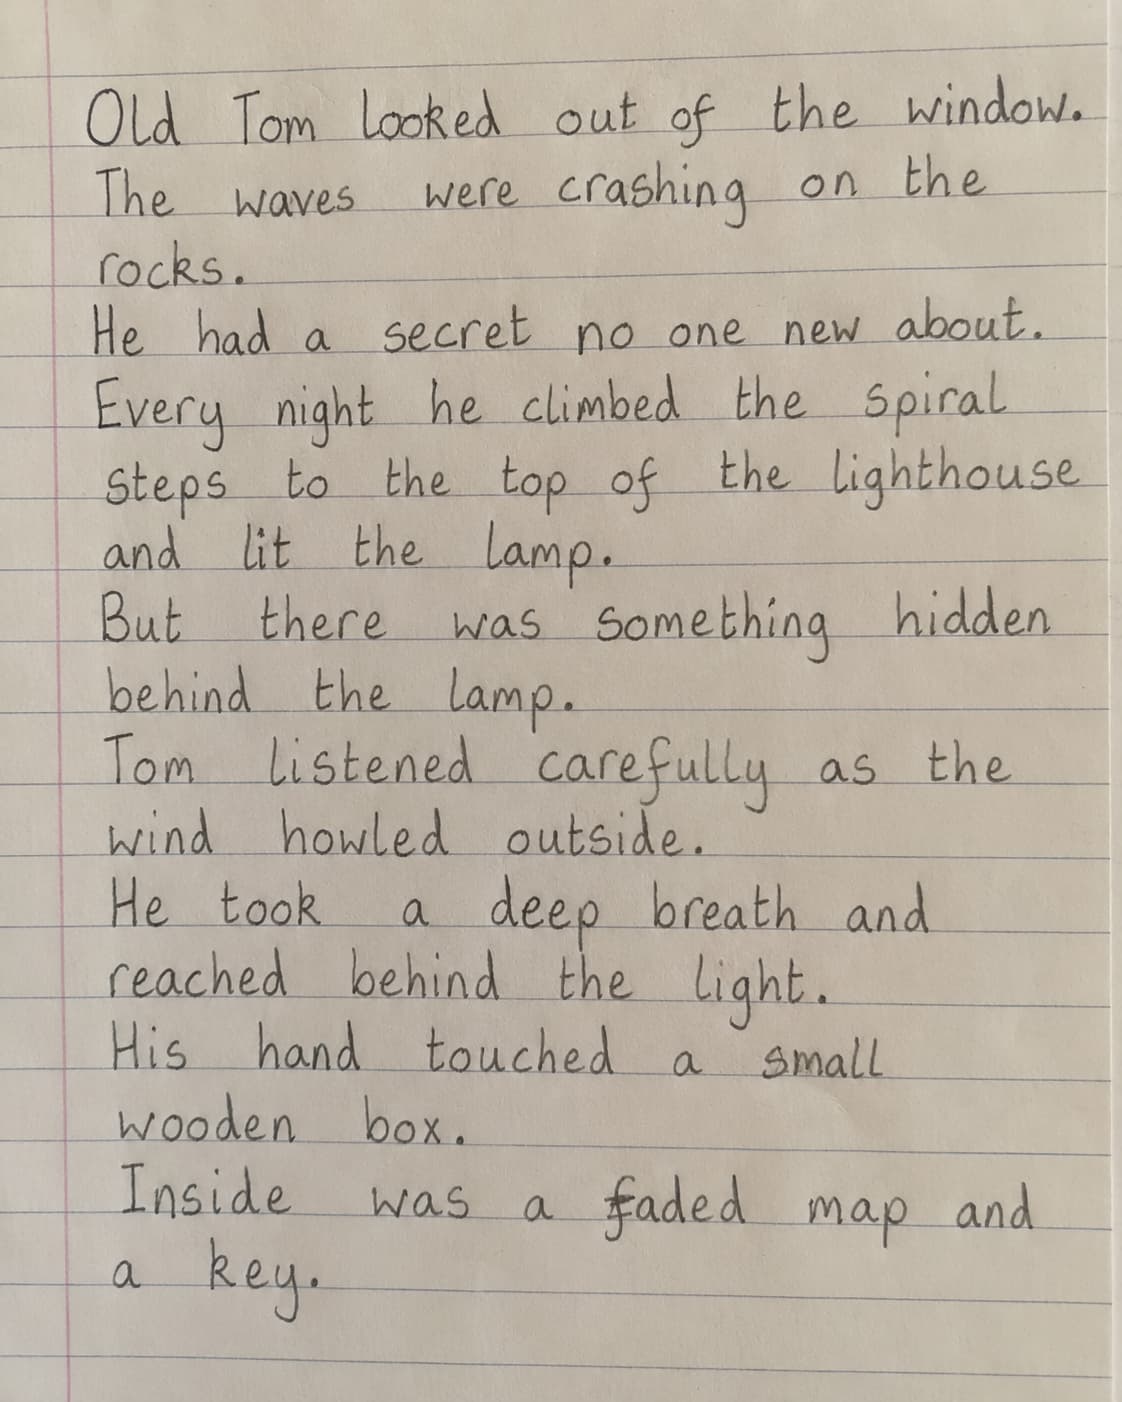 Old Tom looked out of the window.
The waves were crashing on the
rocks.
He had a secret no one new about.
Every night he climbed the spiral
steps to the top of the lighthouse
and lit the lamp.
But there was something hidden
behind the lamp.
Tom listened carefully as the
wind howled outside.
He took a deep breath and
reached behind the light.
His hand touched a small
wooden box.
Inside was a faded map and
a key.